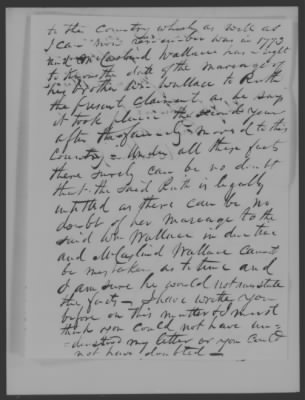 to the Country which as well as
I can now remember was in 1773
and McCaslind Wallace has a right
to know the date of the marriage of
his brother Wm Wallace to Ruth
the present Claimant as he says
it took place the second year
after the family moved to this
Country - Under all these facts
there surely can be no doubt
that the said Ruth is legally
intitled as there can be no
doubt of her marriage to the
said Wm Wallace in due time
and McCaslind Wallace cannot
be mistaken as to time and
I am sure he would not misstate
the facts - I have written you
before on this matter & must
think you could not have un-
-derstood my letter or you could
not have doubted -